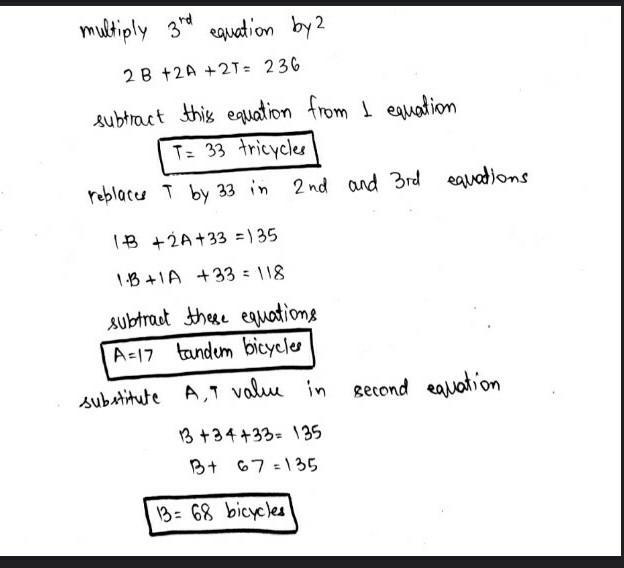 multiply 3rd equation by 2
2B + 2A + 2T = 236
subtract this equation from 1 equation
T = 33 tricycles
replaces T by 33 in 2nd and 3rd equations
1B + 2A + 33 = 135
1.B + 1A + 33 = 118
subtract these equations
A = 17 tandem bicycles
substitute A, T value in second equation
B + 34 + 33 = 135
B + 67 = 135
B = 68 bicycles